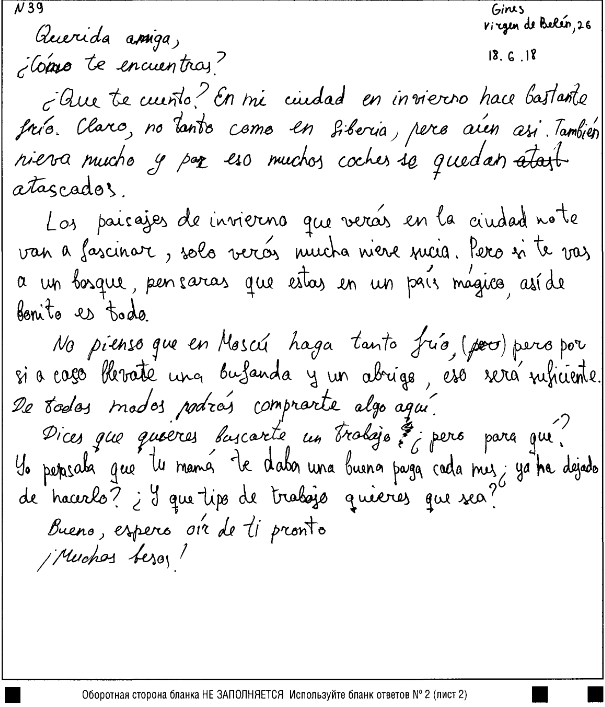 N 39
Gines
Virgen de Belén, 26
18.6.18
Querida amiga,
¿Cómo te encuentras?
¿Que te cuento? En mi ciudad en invierno hace bastante
frío. Claro, no tanto como en Siberia, pero aún asi. También
nieva mucho y por eso muchos coches se quedan atast
atascados.
Los paisajes de invierno que verás en la ciudad no te
van a fascinar, solo verás mucha nieve sucia. Pero si te vas
a un bosque, pensaras que estas en un país mágico, así de
bonito es todo.
No pienso que en Moscú haga tanto frío, (pero) pero por
si a caso llevate una bufanda y un abrigo, eso será suficiente.
De todos modos podrás comprarte algo aquí.
Dices que quieres buscarte un trabajo, ¿pero para qué?
Yo pensaba que tu mamá te daba una buena paga cada mes, ¿ya ha dejado
de hacerlo? ¿Y que tipo de trabajo quieres que sea?
Bueno, espero oír de ti pronto
¡Muchos besos!
Оборотная сторона бланка НЕ ЗАПОЛНЯЕТСЯ Используйте бланк ответов № 2 (лист 2)